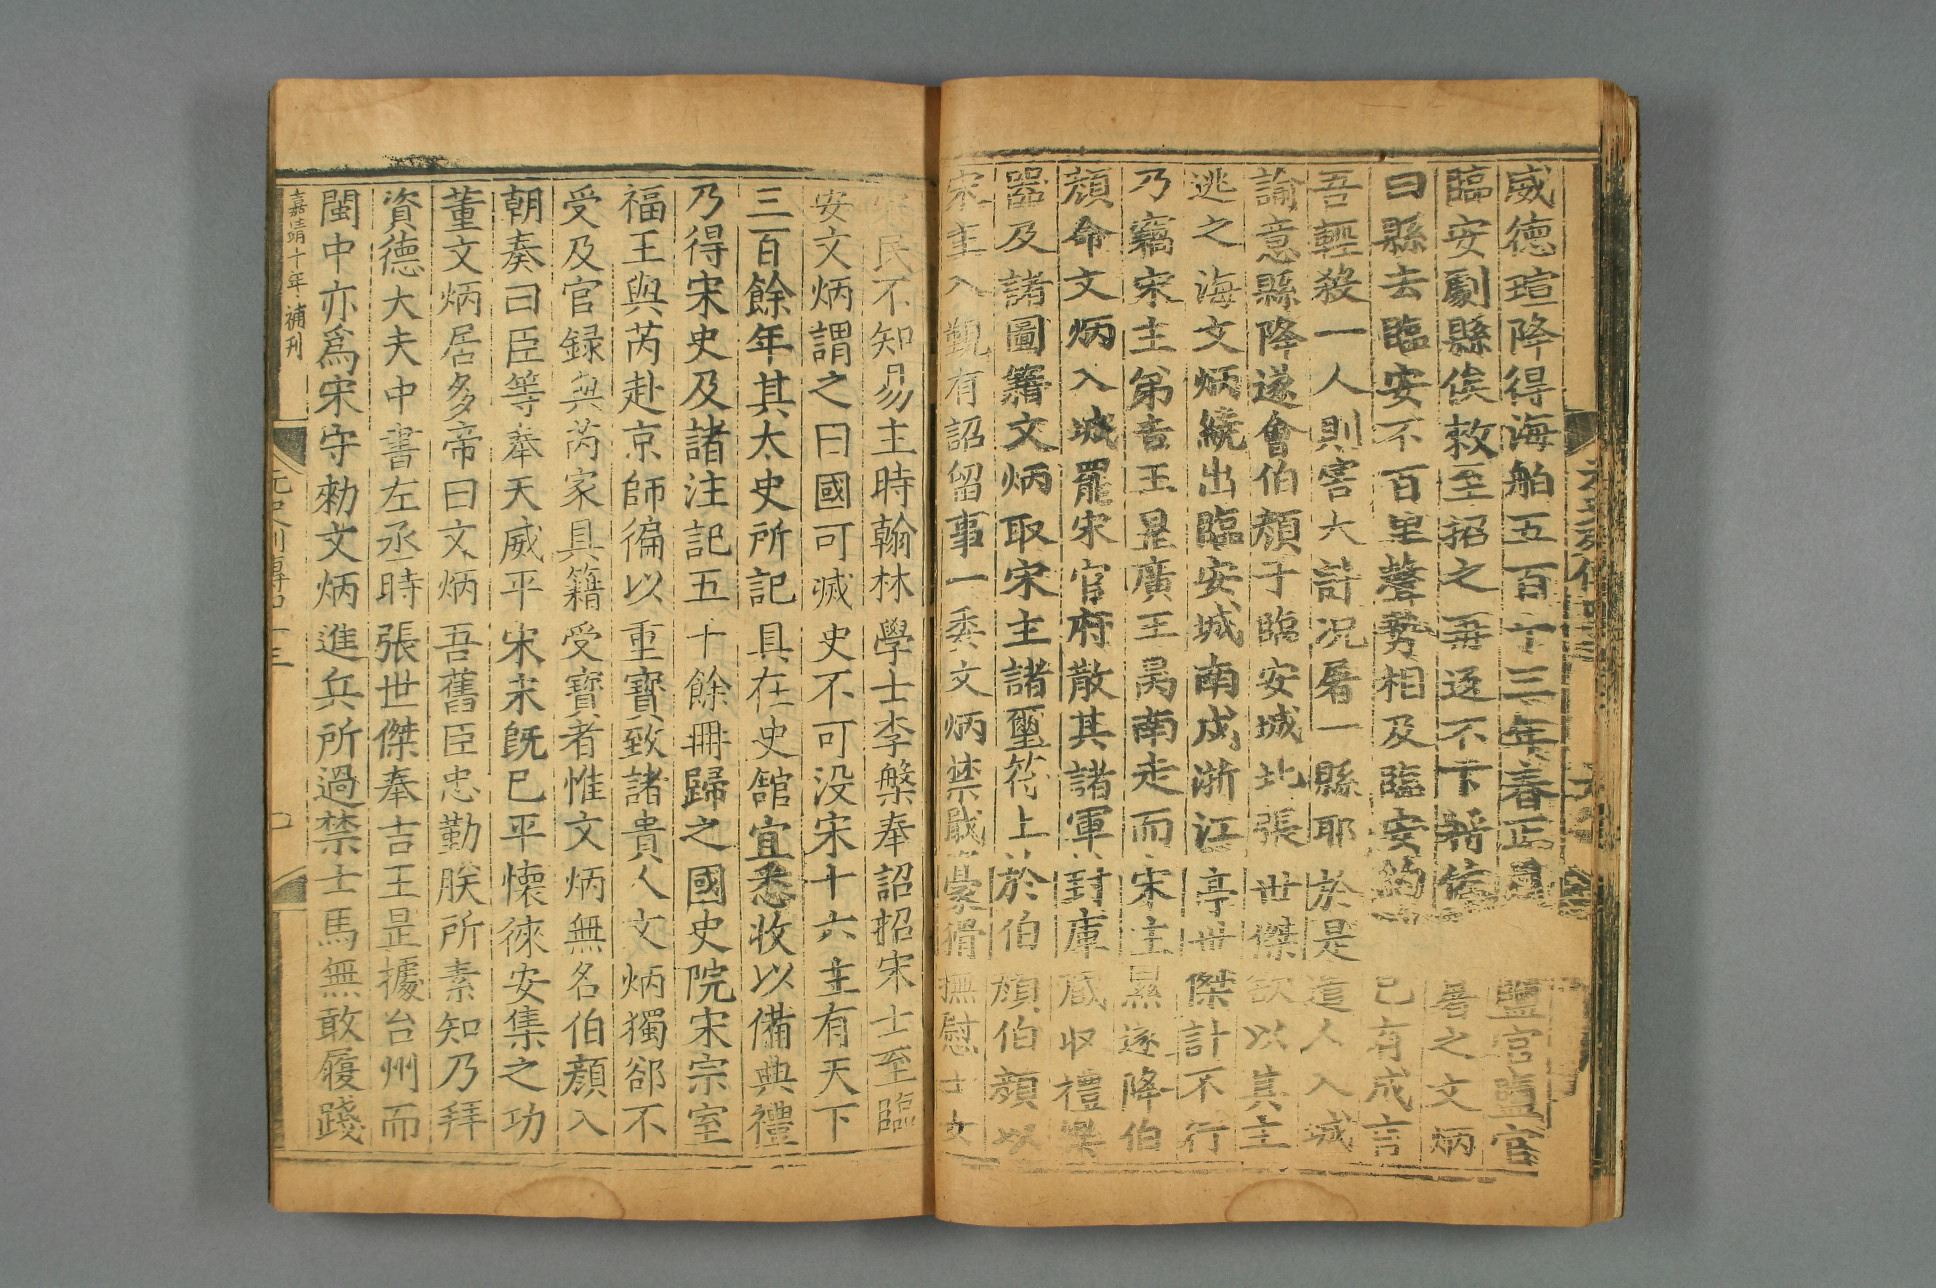 威德瑄降得海舶五百十三年春正月 鹽官鹽官
臨安劇縣俟救至招之再返不下將佐 屠之文炳
曰縣去臨安不百里聲勢相及臨安約 已有成言
吾輕殺一人則害大計況屠一縣耶於是遣人入城
諭意縣降遂會伯顏于臨安城北張世傑欲以其主
逃之海文炳繞出臨安城南戍浙江亭世傑計不行
乃竊宋主弟吉王昰廣王昺南走而宋主㬎遂降伯
顏命文炳入城罷宋官府散其諸軍封庫藏收禮樂
器及諸圖籍文炳取宋主諸璽符上於伯顏伯顏以
宋主入覲有詔留事一委文炳禁戢豪猾撫慰士女
宋民不知易主時翰林學士李槃奉詔招宋士至臨
安文炳謂之曰國可滅史不可没宋十六主有天下
三百餘年其太史所記具在史舘宜悉收以備典禮
乃得宋史及諸注記五十餘冊歸之國史院宋宗室
福王與芮赴京師徧以重寳致諸貴人文炳獨郤不
受及官録與芮家具籍受寳者惟文炳無名伯顏入
朝奏曰臣等奉天威平宋宋既已平懷徠安集之功
董文炳居多帝曰文炳吾舊臣忠勤朕所素知乃拜
資德大夫中書左丞時張世傑奉吉王昰據台州而
閩中亦爲宋守勑文炳進兵所過禁士馬無敢履踐
嘉靖十年補刊
元史列傳四十三